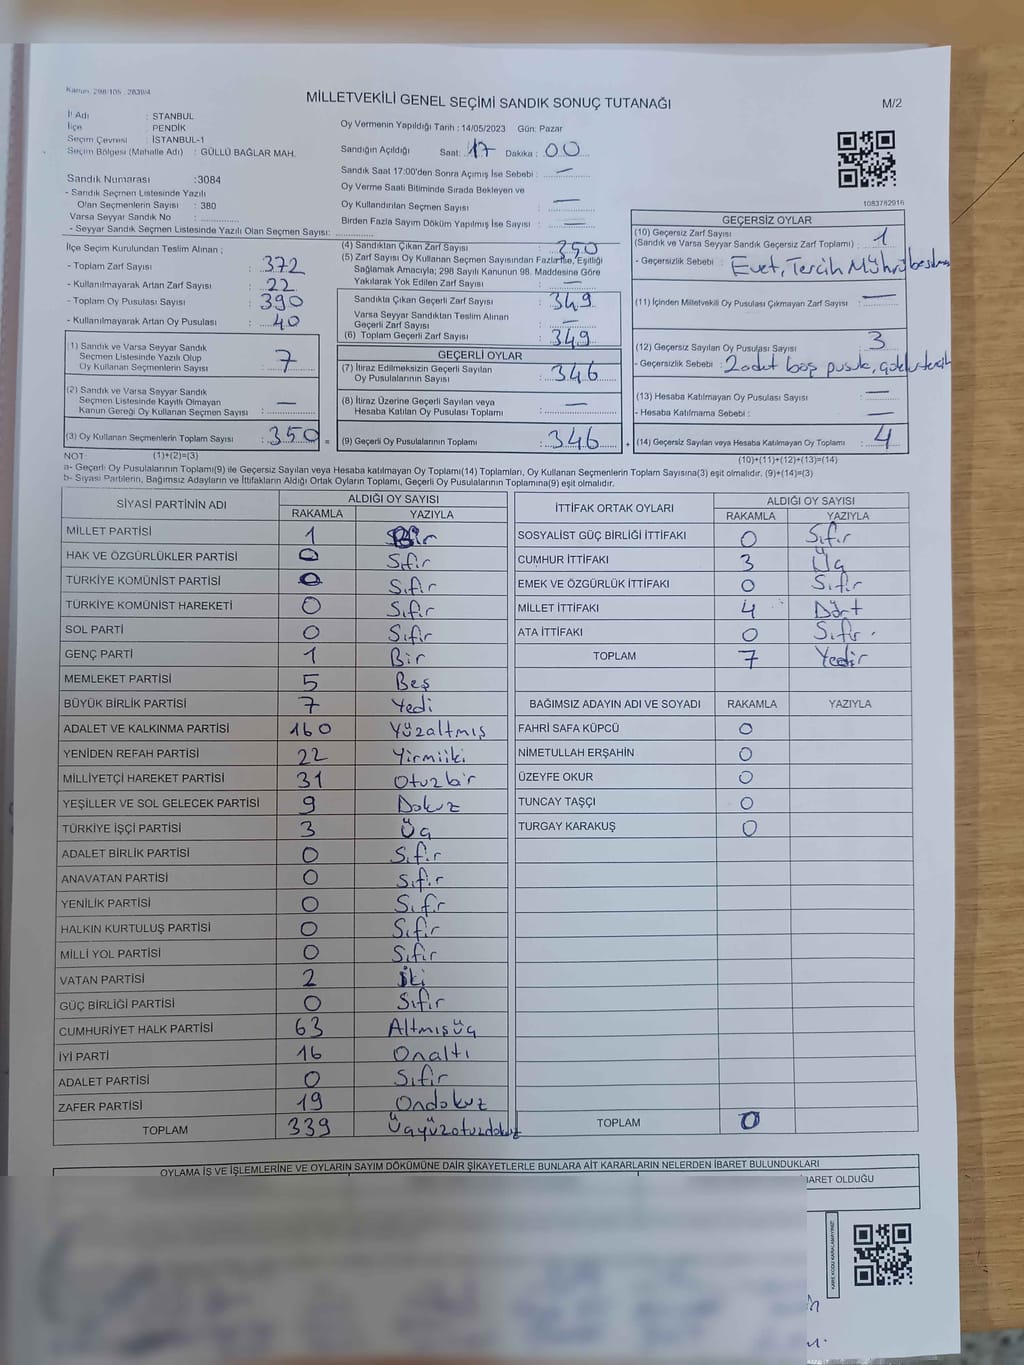 Kanun: 298/105 - 2839/4
MİLLETVEKİLİ GENEL SEÇİMİ SANDIK SONUÇ TUTANAĞI
M/2
İl Adı : STANBUL
İlçe : PENDİK
Seçim Çevresi : İSTANBUL-1
Seçim Bölgesi (Mahalle Adı) : GÜLLÜ BAĞLAR MAH.
Oy Vermenin Yapıldığı Tarih : 14/05/2023 Gün: Pazar
Sandığın Açıldığı Saat: 17 Dakika : 00
Sandık Saat 17:00'den Sonra Açımış İse Sebebi : —
Oy Verme Saati Bitiminde Sırada Bekleyen ve
Oy Kullandırılan Seçmen Sayısı : —
Birden Fazla Sayım Döküm Yapılmış İse Sayısı : —
1083782916
Sandık Numarası :3084
- Sandık Seçmen Listesinde Yazılı
Olan Seçmenlerin Sayısı : 380
Varsa Seyyar Sandık No :
- Seyyar Sandık Seçmen Listesinde Yazılı Olan Seçmen Sayısı:
İlçe Seçim Kurulundan Teslim Alınan ;
- Toplam Zarf Sayısı : 372
- Kullanılmayarak Artan Zarf Sayısı : 22
- Toplam Oy Pusulası Sayısı : 390
- Kullanılmayarak Artan Oy Pusulası : 40
(1) Sandık ve Varsa Seyyar Sandık
Seçmen Listesinde Yazılı Olup
Oy Kullanan Seçmenlerin Sayısı : 7
(2) Sandık ve Varsa Seyyar Sandık
Seçmen Listesinde Kayıtlı Olmayan
Kanun Gereği Oy Kullanan Seçmen Sayısı : —
(3) Oy Kullanan Seçmenlerin Toplam Sayısı : 350 =
(4) Sandıktan Çıkan Zarf Sayısı : 350
(5) Zarf Sayısı Oy Kullanan Seçmen Sayısından Fazla İse, Eşitliği
Sağlamak Amacıyla; 298 Sayılı Kanunun 98. Maddesine Göre
Yakılarak Yok Edilen Zarf Sayısı : —
Sandıkta Çıkan Geçerli Zarf Sayısı : 349
Varsa Seyyar Sandıktan Teslim Alınan
Geçerli Zarf Sayısı : —
(6) Toplam Geçerli Zarf Sayısı : 349
GEÇERLİ OYLAR
(7) İtiraz Edilmeksizin Geçerli Sayılan
Oy Pusulalarının Sayısı : 346
(8) İtiraz Üzerine Geçerli Sayılan veya
Hesaba Katılan Oy Pusulası Toplamı : —
(9) Geçerli Oy Pusulalarının Toplamı : 346 +
GEÇERSİZ OYLAR
(10) Geçersiz Zarf Sayısı
(Sandık ve Varsa Seyyar Sandık Geçersiz Zarf Toplamı) : 1
- Geçersizlik Sebebi : Evet, Tercih Mührü
(11) İçinden Milletvekili Oy Pusulası Çıkmayan Zarf Sayısı : —
(12) Geçersiz Sayılan Oy Pusulası Sayısı : 3
- Geçersizlik Sebebi : 2 adet boş pusula,
(13) Hesaba Katılmayan Oy Pusulası Sayısı : —
- Hesaba Katılmama Sebebi : —
(14) Geçersiz Sayılan veya Hesaba Katılmayan Oy Toplamı : 4
NOT: (1)+(2)=(3)
(10)+(11)+(12)+(13)=(14)
a- Geçerli Oy Pusulalarının Toplamı(9) ile Geçersiz Sayılan veya Hesaba katılmayan Oy Toplamı(14) Toplamları, Oy Kullanan Seçmenlerin Toplam Sayısına(3) eşit olmalıdır. (9)+(14)=(3)
b- Siyasi Partilerin, Bağımsız Adayların ve İttifakların Aldığı Ortak Oyların Toplamı, Geçerli Oy Pusulalarının Toplamına(9) eşit olmalıdır.
SİYASİ PARTİNİN ADI ALDIĞI OY SAYISI
RAKAMLA YAZIYLA
MİLLET PARTİSİ 1 Bir
HAK VE ÖZGÜRLÜKLER PARTİSİ 0 Sıfır
TÜRKİYE KOMÜNİST PARTİSİ 0 Sıfır
TÜRKİYE KOMÜNİST HAREKETİ 0 Sıfır
SOL PARTİ 0 Sıfır
GENÇ PARTİ 1 Bir
MEMLEKET PARTİSİ 5 Beş
BÜYÜK BİRLİK PARTİSİ 7 Yedi
ADALET VE KALKINMA PARTİSİ 160 Yüzaltmış
YENİDEN REFAH PARTİSİ 22 Yirmiiki
MİLLİYETÇİ HAREKET PARTİSİ 31 Otuzbir
YEŞİLLER VE SOL GELECEK PARTİSİ 9 Dokuz
TÜRKİYE İŞÇİ PARTİSİ 3 Üç
ADALET BİRLİK PARTİSİ 0 Sıfır
ANAVATAN PARTİSİ 0 Sıfır
YENİLİK PARTİSİ 0 Sıfır
HALKIN KURTULUŞ PARTİSİ 0 Sıfır
MİLLİ YOL PARTİSİ 0 Sıfır
VATAN PARTİSİ 2 İki
GÜÇ BİRLİĞİ PARTİSİ 0 Sıfır
CUMHURİYET HALK PARTİSİ 63 Altmışüç
İYİ PARTİ 16 Onaltı
ADALET PARTİSİ 0 Sıfır
ZAFER PARTİSİ 19 Ondokuz
TOPLAM 339 Üçyüzotuzdokuz
İTTİFAK ORTAK OYLARI ALDIĞI OY SAYISI
RAKAMLA YAZIYLA
SOSYALİST GÜÇ BİRLİĞİ İTTİFAKI 0 Sıfır
CUMHUR İTTİFAKI 3 Üç
EMEK VE ÖZGÜRLÜK İTTİFAKI 0 Sıfır
MİLLET İTTİFAKI 4 Dört
ATA İTTİFAKI 0 Sıfır
TOPLAM 7 Yedi
BAĞIMSIZ ADAYIN ADI VE SOYADI RAKAMLA YAZIYLA
FAHRİ SAFA KÜPCÜ 0
NİMETULLAH ERŞAHİN 0
ÜZEYFE OKUR 0
TUNCAY TAŞÇI 0
TURGAY KARAKUŞ 0
TOPLAM 0
OYLAMA İŞ VE İŞLEMLERİNE VE OYLARIN SAYIM DÖKÜMÜNE DAİR ŞİKAYETLERLE BUNLARA AİT KARARLARIN NELERDEN İBARET BULUNDUKLARI
BARET OLDUĞU
KARE KODU KARALAMAYINIZ!